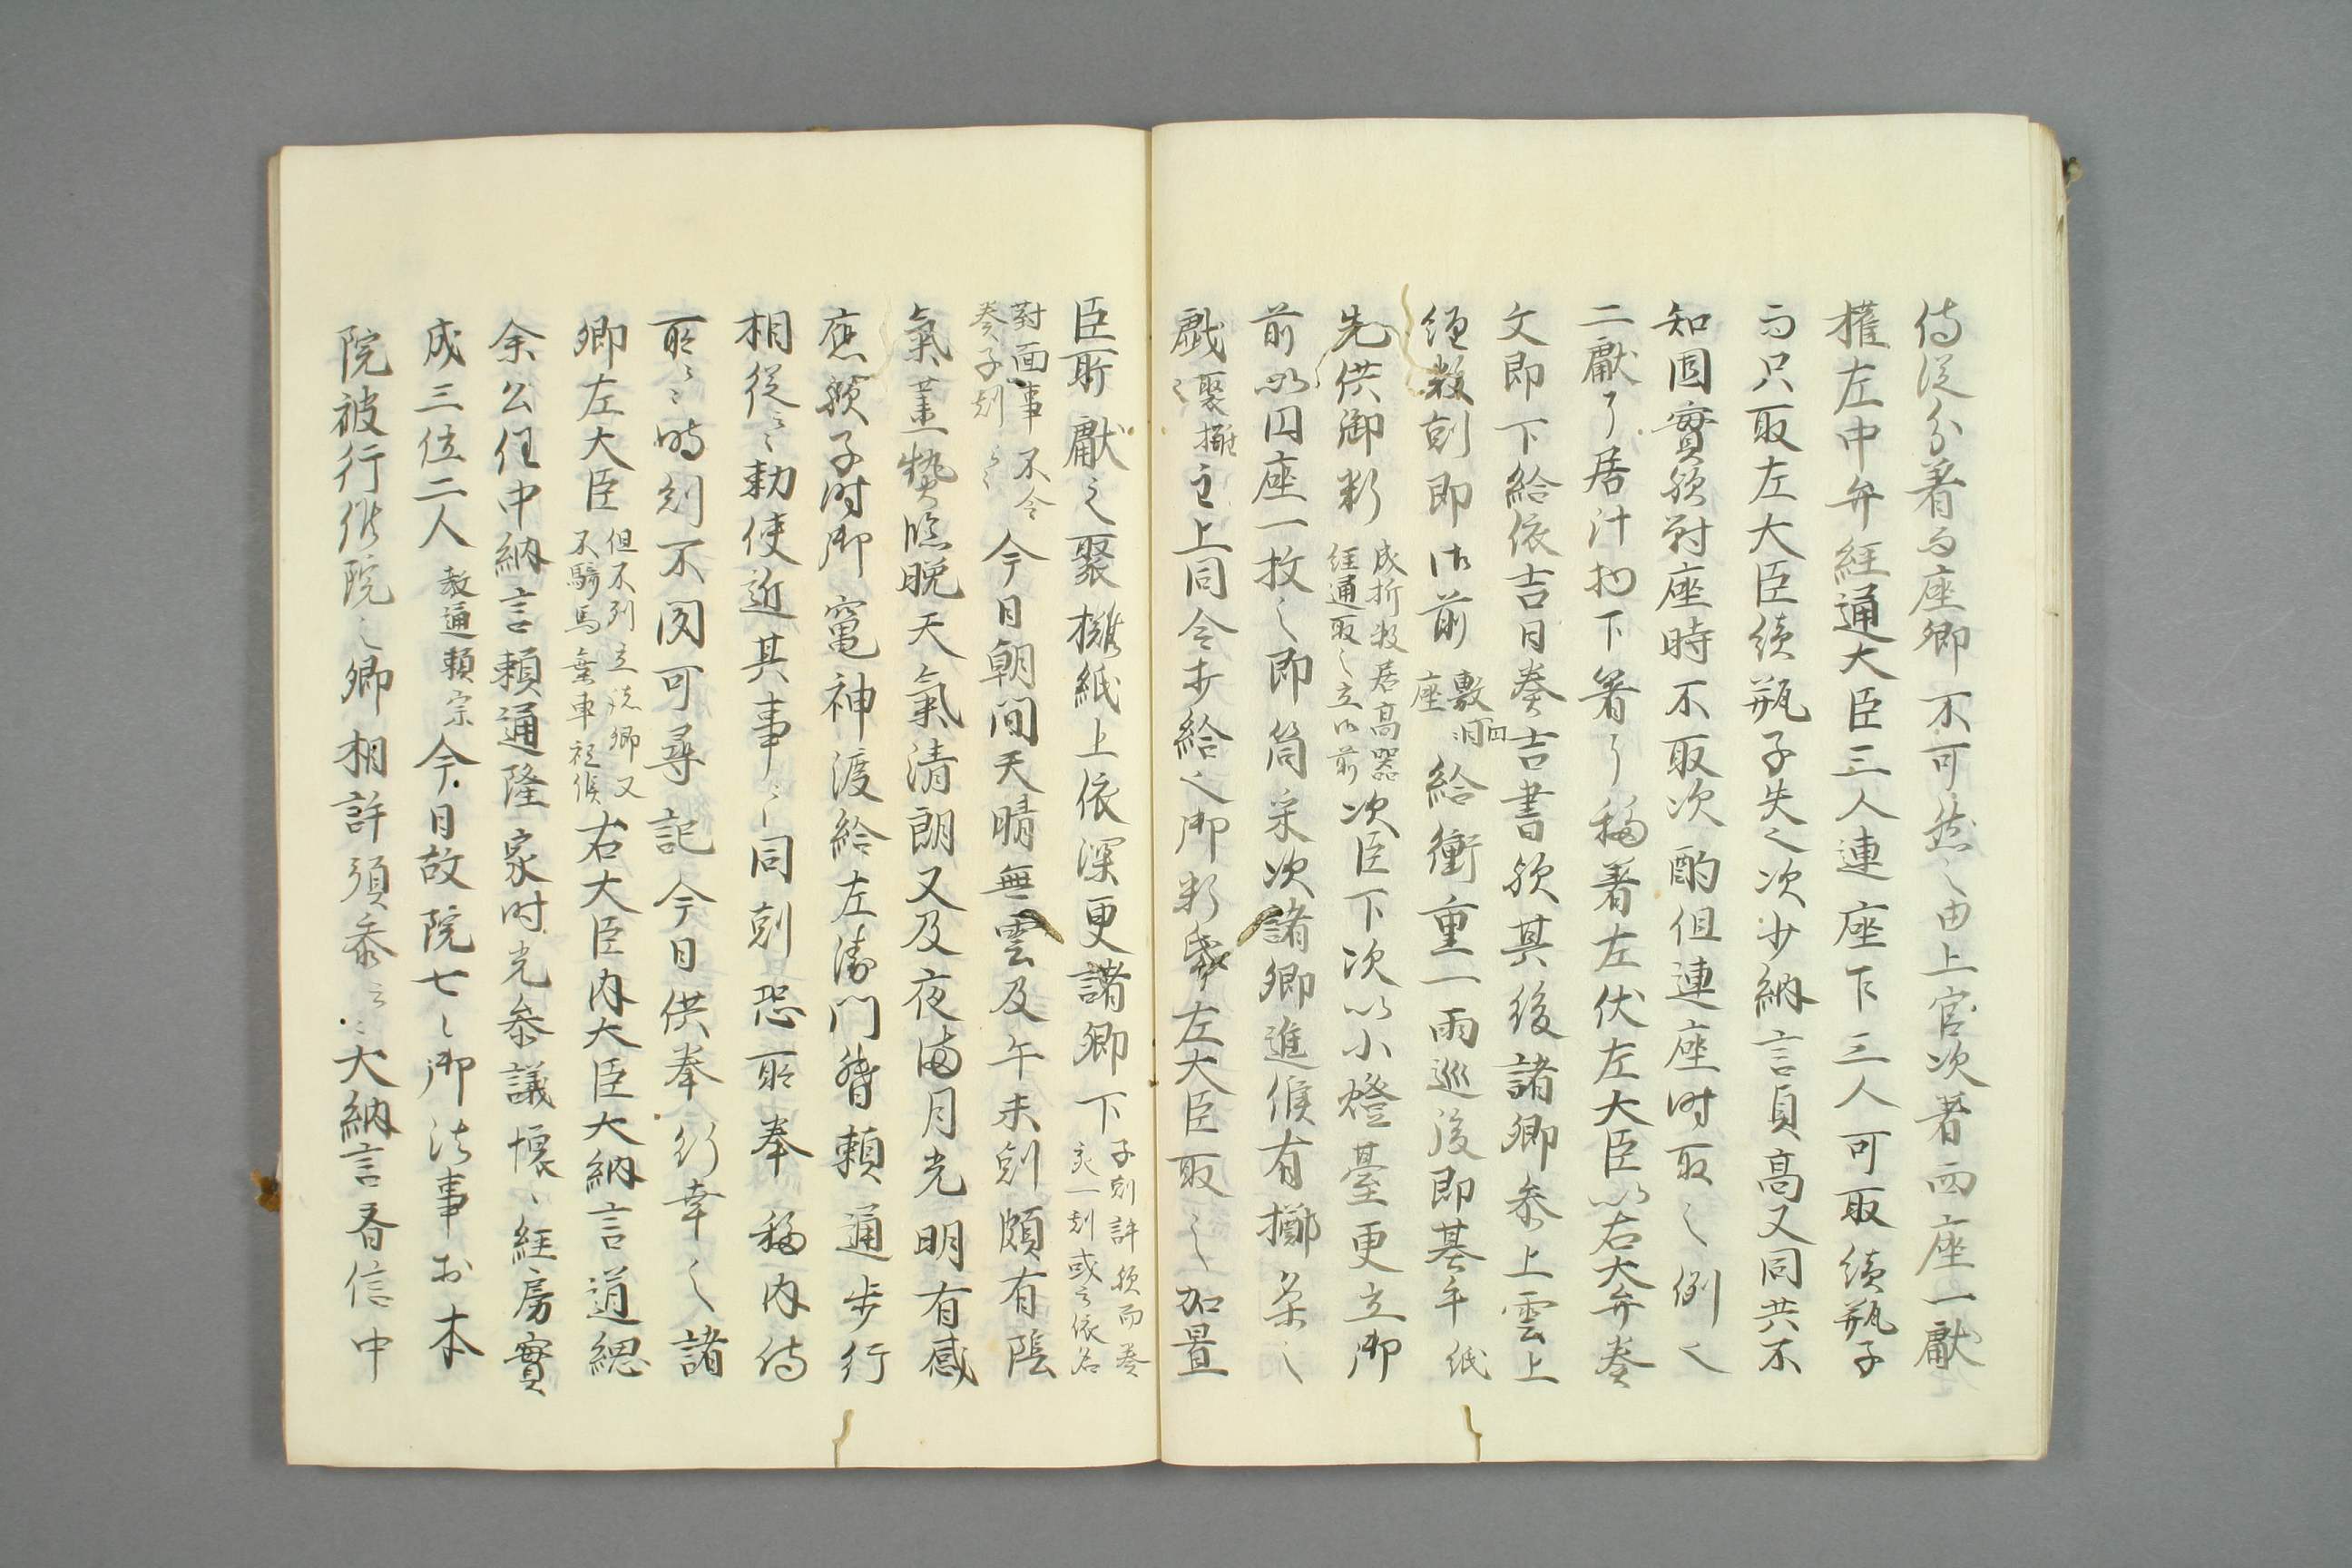 侍従分着南座卿不可然之由上官次著西座一献
権左中弁経通大臣三人連座下三人可取續瓶子
而只取左大臣續瓶子失也次少納言員高又同共不
知固實欤対座時不取次酌但連座时取之例也
二献了居汁物下箸了移著左伏左大臣以右大弁奏
文即下給依吉日奏吉書欤其後諸卿参上雲上
経数剋即御前敷円座給衝重一両巡後即碁手紙
先供御料盛折敷居高器経通取之立御前次臣下次以小燈臺更立御
前以円座一枚之即筒采次諸卿進候有擲采之
戯聚攤主上同令打給之御料紙左大臣取之加置
臣所献之聚攤紙上依深更諸卿下子剋許欤而奏亥一剋或云依名
對面事不令奏子剋云々今日朝間天晴無雲及午未剋頗有陰
氣薫 臨晩天氣清朗又及夜満月光明有感
應欤子时御竈神渡給左衛門督頼通歩行
相従云々勅使近其事云々同剋恐所奉移内侍
所云々時剋不同可尋記今日供奉行幸之諸
卿左大臣但不列立諸卿又不騎馬乗車被候右大臣内大臣大納言道綱
余公任中納言頼通隆家时光参議懐々経房實
成三位二人教通頼宗今日故院七々御法事於本
院被行件院之卿相許須参云々大納言斉信中